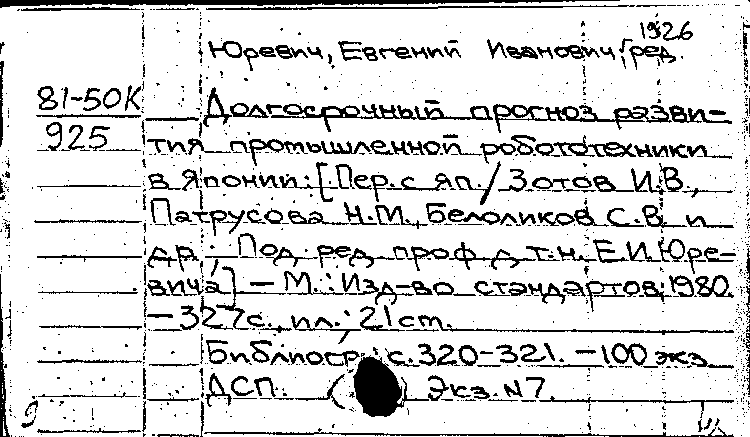 1926
Юревич, Евгений Иванович, ред.
81-50К
925
Долгосрочный прогноз разви-
тия промышленной робототехники
в Японии: [Пер. с яп. / Зотов И.В.,
Патрусова Н.М., Белоликов С.В. и
др.; Под ред. проф. д.т.н. Е.И. Юре-
вича] – М.: Изд-во стандартов, 1980.
– 327с., ил.; 21 ст.
Библиогр.: с. 320-321. – 100 экз.
ДСП. Экз. N7.